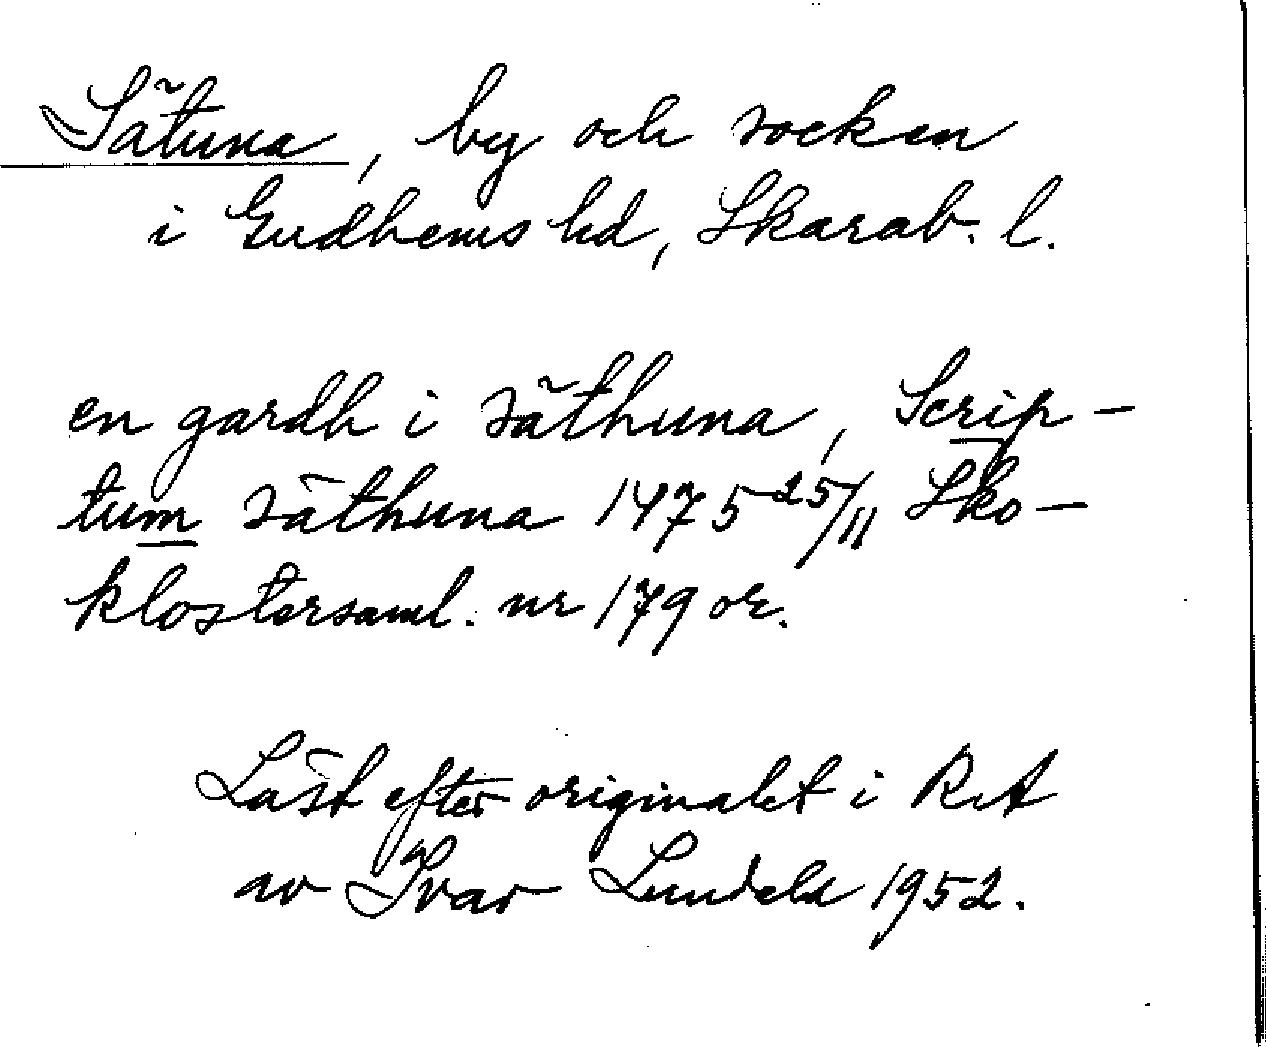 Sätuna, by och socken
i Gudhems hd, Skarab. l.
en gardh i säthuna, Scrip-
tum säthuna 1475 25/11 Sko-
klostersaml. nr 179 or.
Läst efter originalet i RA
av Ivar Lundahl 1952.